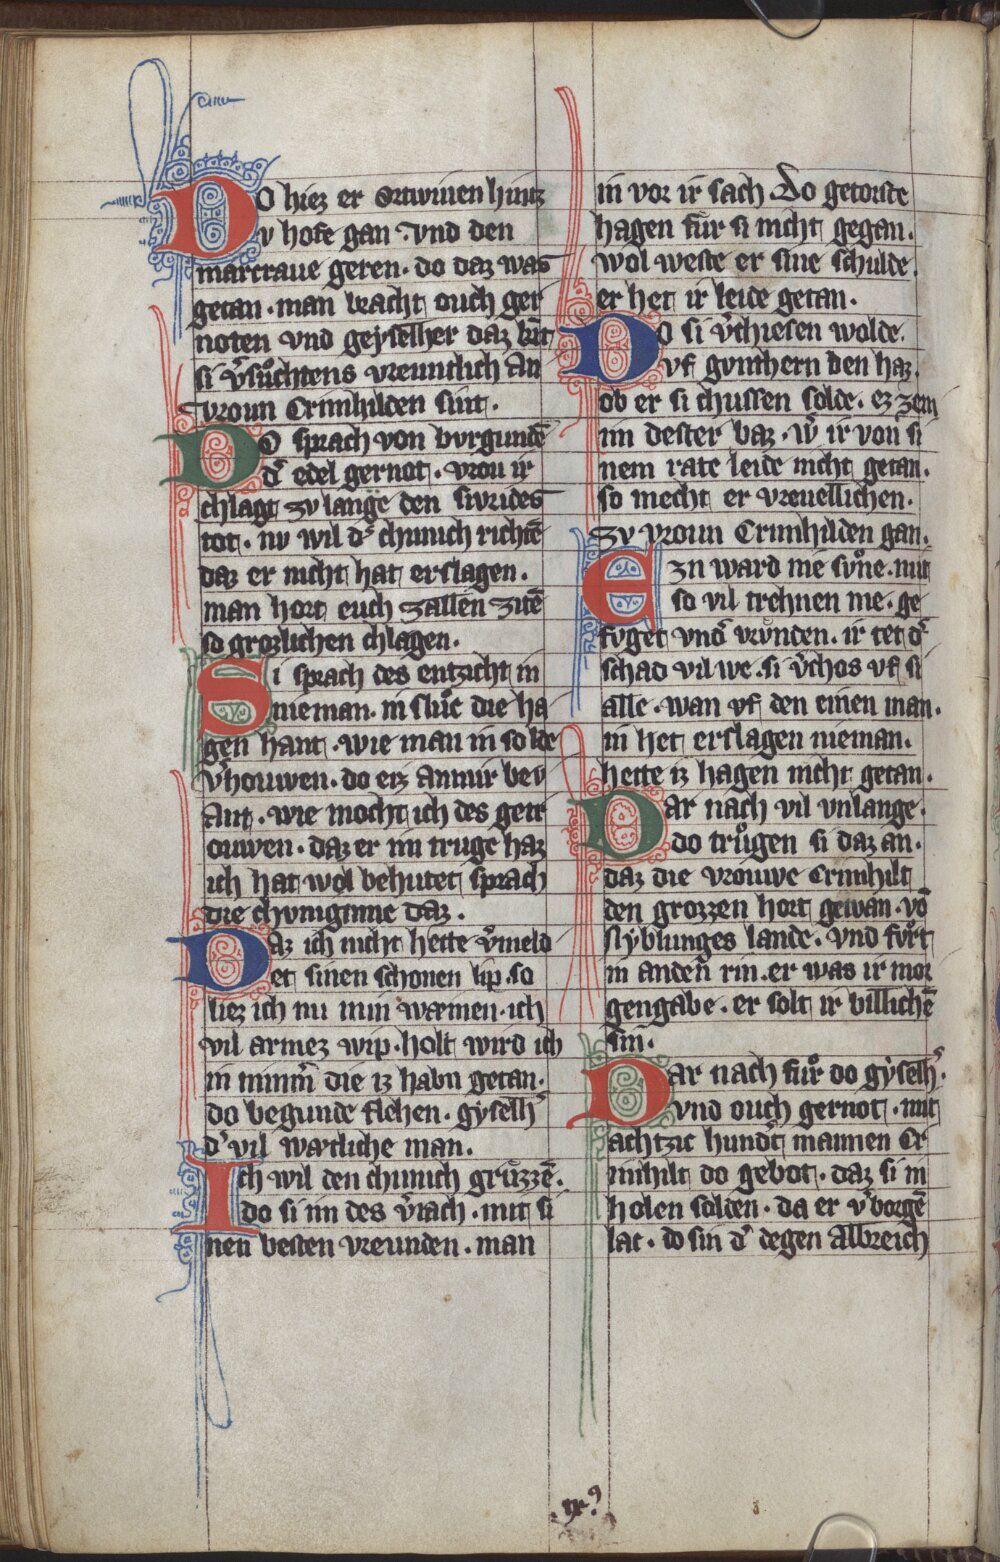 DO hiez er ortwinen hintz
v hofe gan · vnd den
marcraue geren · do daz was
getan · man bracht ouch ger
noten vnd geyselher daz kīt
si v̓sůchtens vreuntlich an
vroun Crimhilden sint .
DO sprach von burgundē
d̓ edel gernot · vrou ir
chlagt zv lange den sivrides
tot · nv wil d̓ chunich richtē
daz er nicht hat erslagen .
man hort euch zallen zitē
so grozlichen chlagen .
SI sprach des entzicht in
nieman · in slůc die ha
gen hant · wie man in solde
v̓houwen · do erz an mir bev
ant · wie mocht ich des getr
ouwen · daz er im truge haz
ich hat wol behutet sprach
die chvniginne daz .
DAz ich nicht hette v̓meld
et sinen schonen lip · so
liez ich nu min wæinen · ich
vil armez wip · holt wird ich
in nimm̄ die iz habn getan ·
do begunde flehen · gyselh̓
d̓ vil wærtliche man .
ICh wil den chunich grůzzē .
do si im des v̓iach · mit si
nen besten vreunden · man
in vor ir sach Do getorste
hagen fur si nicht gegan .
wol weste er sine schulde .
er het ir leide getan .
DO si v̓chiesen wolde .
vf gvnthern den haz .
ob er si chussen solde · ez zem
im dester baz · w̓ ir von si
nem rate leide nicht getan .
so mecht er vreuellichen .
zv vroun Crimhilden gan .
EZn ward nie sv̊ne · mit
so vil trehnen me · ge
fvget vnd̓ vrůnden · ir tet d̓
schad vil we · si v̓chos vf si
alle · wan vf den einen man .
in het erslagen nieman .
hette iz hagen nicht getan .
DAr nach vil vnlange .
do trůgen si daz an .
daz die vrouwe Crimhilt
den grozzen hort gewan · vō
nyblunges lande · vnd fv̊rt
in anden̄ rin · er was ir mor
gengabe · er solt ir billichē
sin .
DAr nach fůr do gyselh̓ .
vnd ouch gernot · mit
achtzic hund̓t mannen Cr
imhilt do gebot · daz si in
holen solden · da er v̓borgē
lac · do sin d̓ degen Albreich